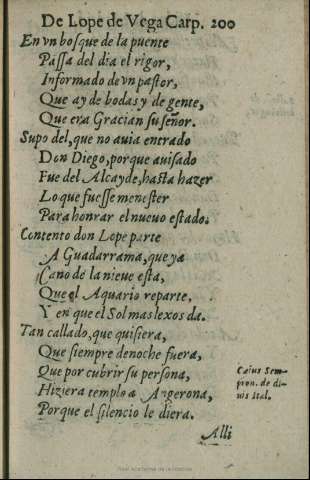 De Lope de Vega Carp. 200
En vn bosque de la puente
Passa del dia el rigor,
Informado de vn pastor,
Que ay de bodas y de gente,
Que era Gracian su señor.
Supo del, que no auia entrado
Don Diego, porque auisado
Fue del Alcayde, hasta hazer
Lo que fuesse menester
Para honrar el nueuo estado.
Contento don Lope parte
A Guadarrama, que ya
Cano de la nieue esta,
Que el Aquario reparte,
Y en que el Sol mas lexos da.
Tan callado, que quisiera,
Que siempre de noche fuera,
Que por cubrir su persona,
Hiziera templo a Angerona,
Porque el silencio le diera.
Caius Sem-
pron. de di-
uis Ital.
Alli